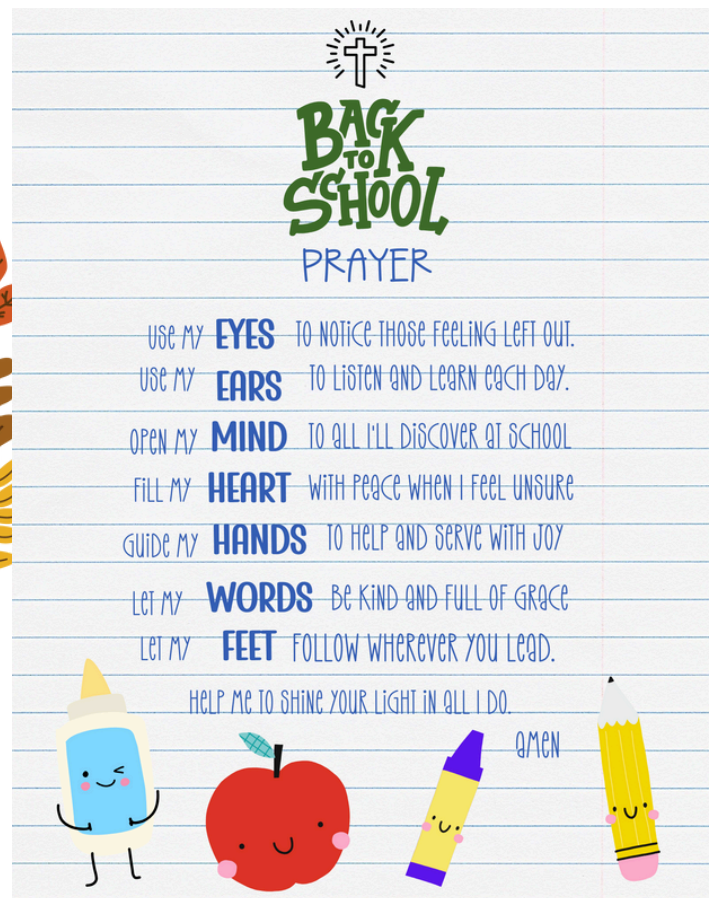 BACK
TO
SCHOOL
PRAYER
USE MY EYES TO NOTICE THOSE FEELING LEFT OUT.
USE MY EARS TO LISTEN AND LEARN EACH DAY.
OPEN MY MIND TO ALL I'LL DISCOVER AT SCHOOL
FILL MY HEART WITH PEACE WHEN I FEEL UNSURE
GUIDE MY HANDS TO HELP AND SERVE WITH JOY
LET MY WORDS BE KIND AND FULL OF GRACE
LET MY FEET FOLLOW WHEREVER YOU LEAD.
HELP ME TO SHINE YOUR LIGHT IN ALL I DO.
AMEN